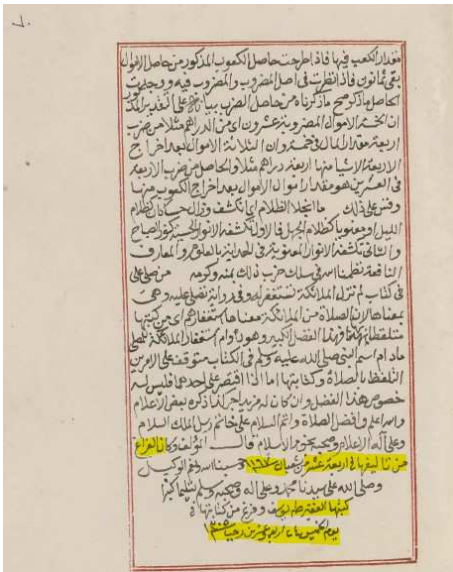 مقدار الكعب فيها فاذا طرحت حاصل الكعوب المذكور من حاصل الاموال
بقى ثمانون فاذا نظرت فى اصل المضروب والمضروب فيه ووجدت
الحاصل ماذكر صح ماذكرناه من حاصل الضرب بيانه على تقدير
ان الخمسة الاموال المضروبة عشرون اى من الدراهم مثلا من ضرب
اربعة مقدار المال فى خمسة وان الثلاثة الاموال بعد اخراج
الاربعة الاشيا منها اربعة دراهم مثلا والحاصل من ضرب الاربعة
فى العشرين هو مقدار اموال الاموال بعد اخراج الكعوب منها
وقس على ذلك ما انجلا الظلام اى انكشف وزال حسيا كان كظلام
الليل او معنويا كظلام الجهل فالاول تكشفه الانوار الحسية كنور الصباح
والثانى تكشفه الانوار المعنوية فى الهداية بالعلوم والمعارف
النافعة نظمنا الله فى سلك حزب ذلك بمنه وكرمه من صلى على
فى كتاب لم تزل الملائكة تستغفر له وفى رواية تصلى عليه وهى
بمعناها لان الصلاة من الملائكة معناها استغفارهم اى من كتبها
متلفظا بها هذا الفضل الكبير وهو دوام استغفار الملائكة للمصلى
مادام اسم النبى صلى الله عليه وسلم فى الكتاب متوقف على الامرين
التلفظ بالصلاة وكتابتها اما اذا اقتصر على احدهما فليس له
خصوص هذا الفضل وان كان له مزيد اجر كذا ذكره بعض الاعلام
والله اعلم وافضل الصلاة واتم السلام على خاتم رسل الملك السلام
وعلى آله الاعلام وصحبه نجوم الاسلام قال المؤلف وكان الفراغ
من تاليفها فى اربعة عشر من شعبان ١١٦٧ وحسبنا الله ونعم الوكيل
وصلى الله على سيدنا محمد وعلى اله وصحبه وسلم تسليما كثيرا
كتبها الفقير طه يوسف وفرغ من كتابتها فى
يوم الخميس رجب